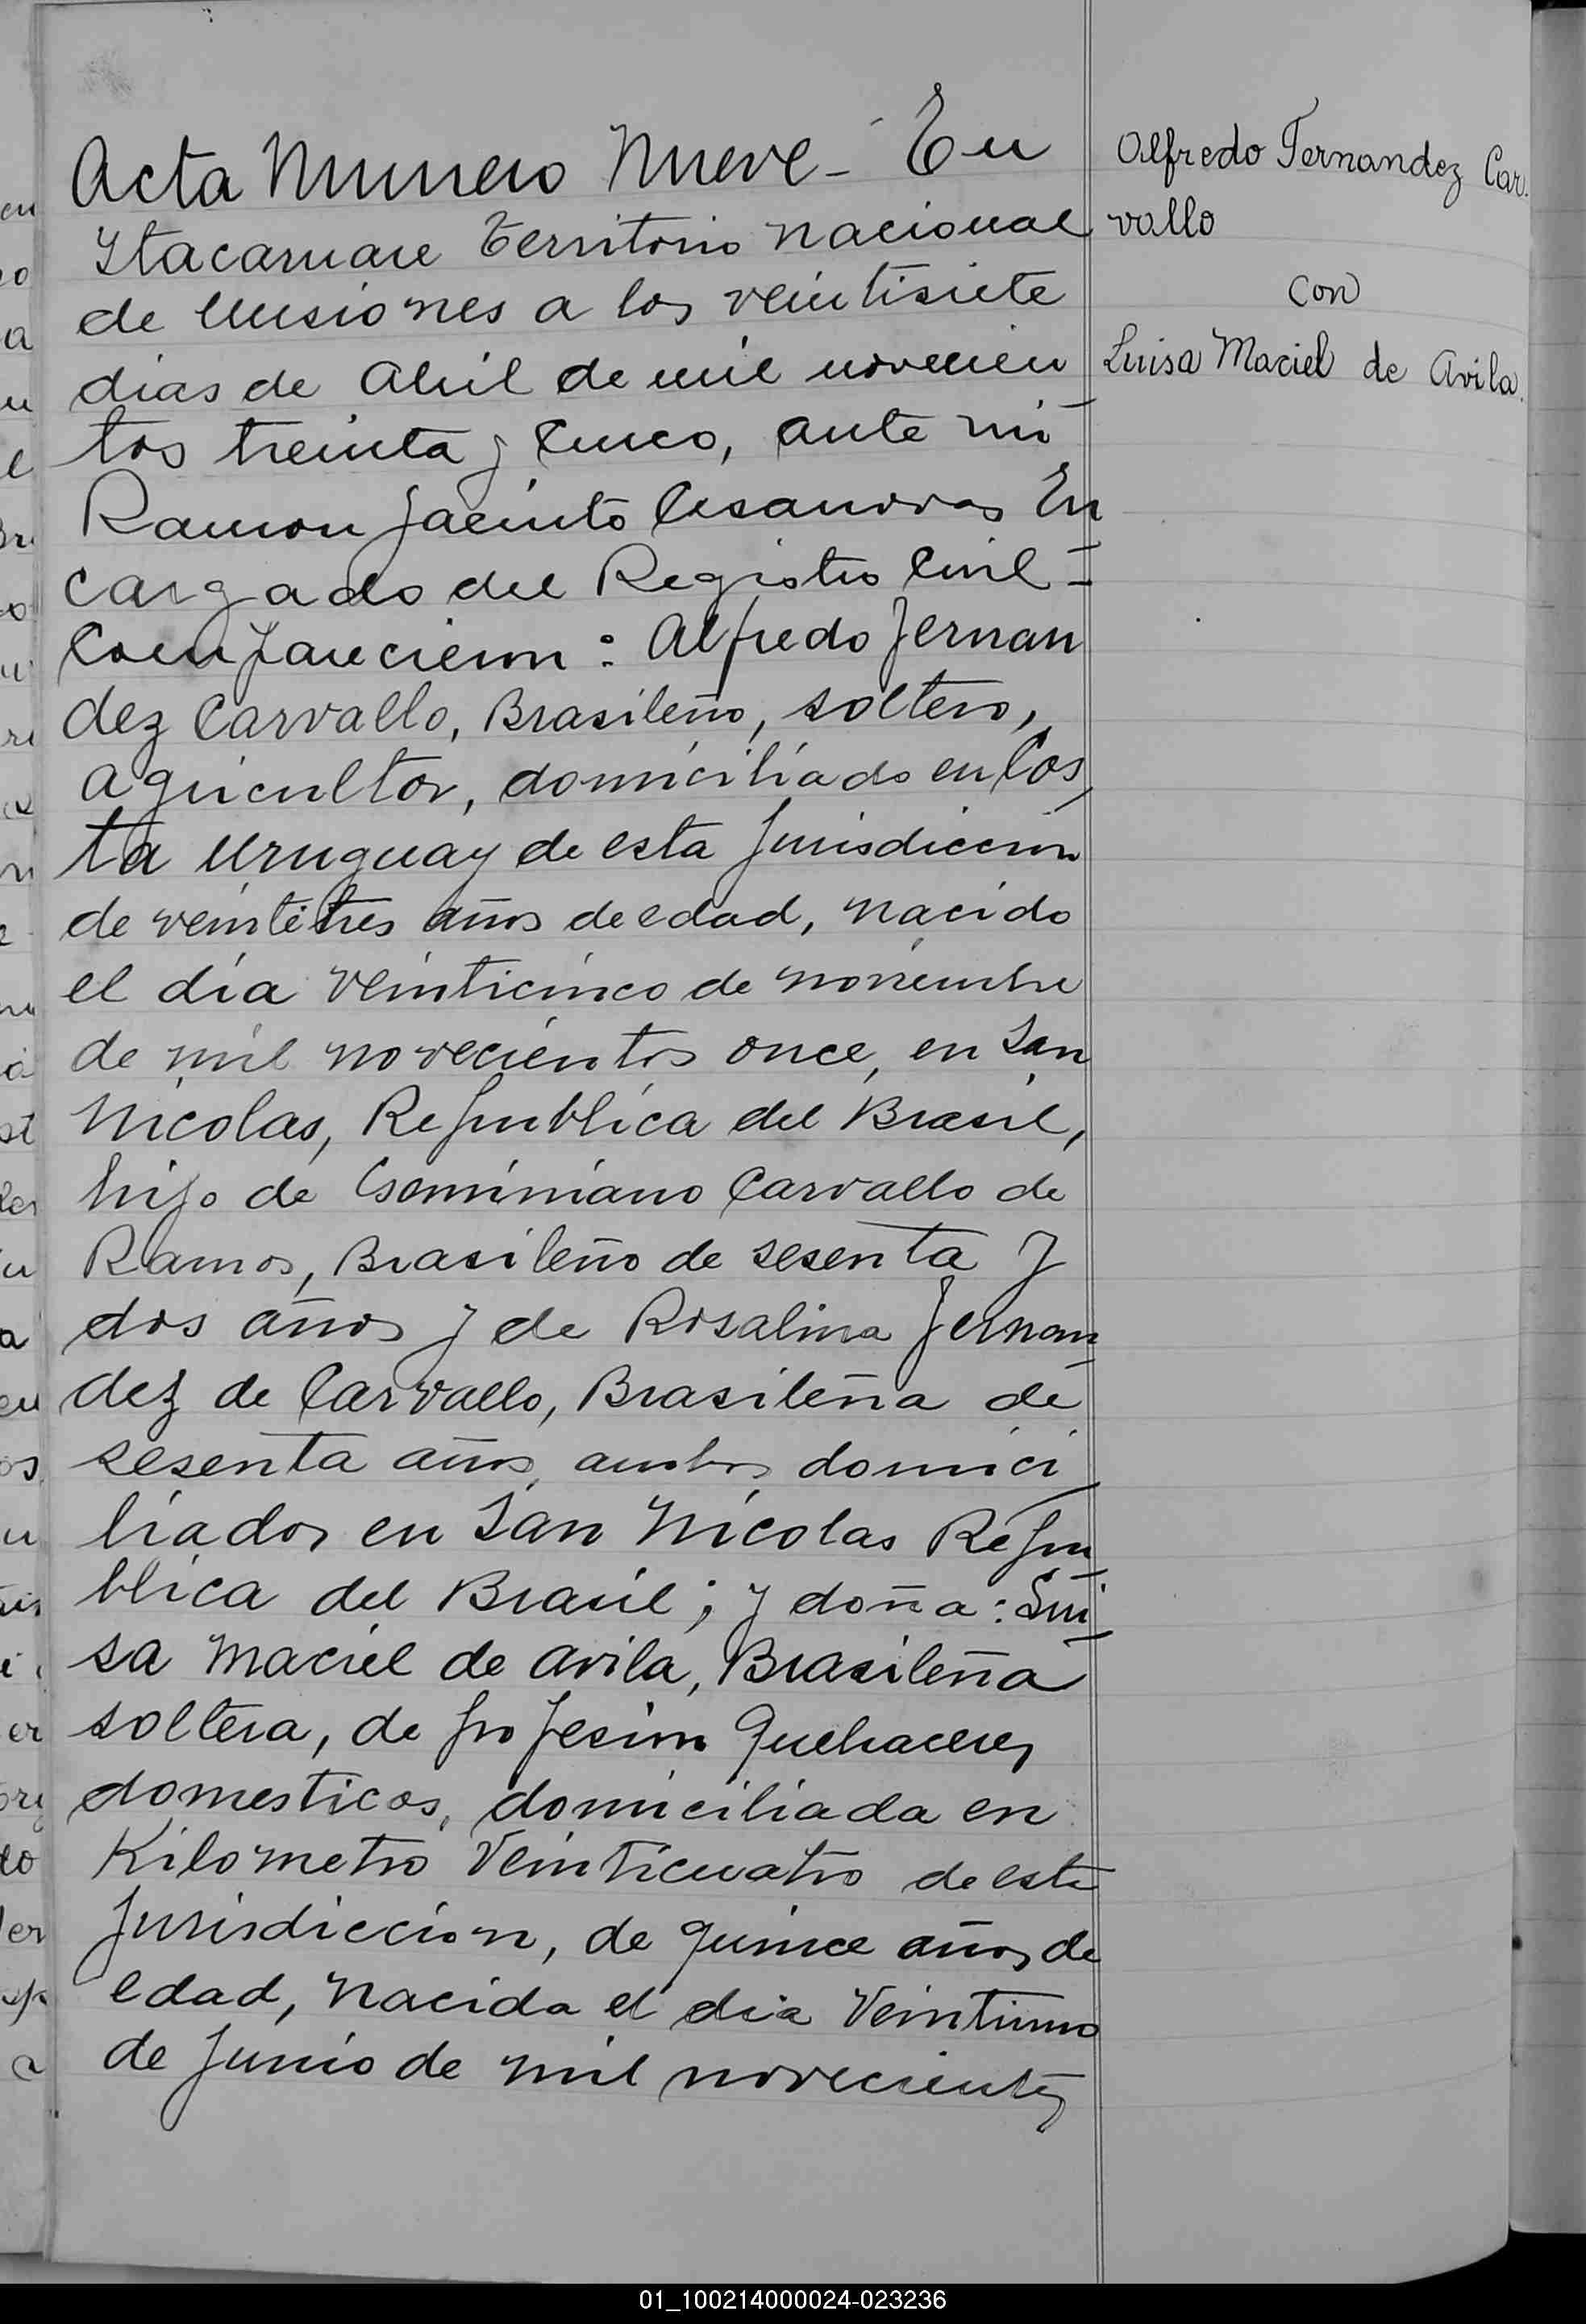 Acta Numero Nueve - En
Itacaruare Territorio Nacional
de Misiones a los veintisiete
dias de Abril de mil novecien
tos treinta y cinco, ante mi
Ramon Jacinto Casanovas En
cargado del Registro Civil -
Comparecieron : Alfredo Fernan
dez Carvallo, Brasileño, soltero,
agricultor, domiciliado en Cos
ta Uruguay de esta Jurisdiccion
de veintitres años de edad, nacido
el día veinticinco de noviembre
de mil novecientos once, en San
Nicolas, Republica del Brasil,
hijo de Geminiano Carvallo de
Ramos, Brasileño de sesenta y
dos años y de Rosalina Fernan
dez de Carvallo, Brasileña de
sesenta años, ambos domici
liados en San Nicolas Repu
blica del Brasil; y doña: Lui
sa Maciel de Avila, Brasileña
soltera, de profesion Quehaceres
domesticos, domiciliada en
Kilometro Veinticuatro de esta
Jurisdiccion, de quince años de
edad, nacida el dia Veintiuno
de Junio de mil novecientos
Alfredo Fernandez Car-
vallo
con
Luisa Maciel de Avila.
01_100214000024-023236